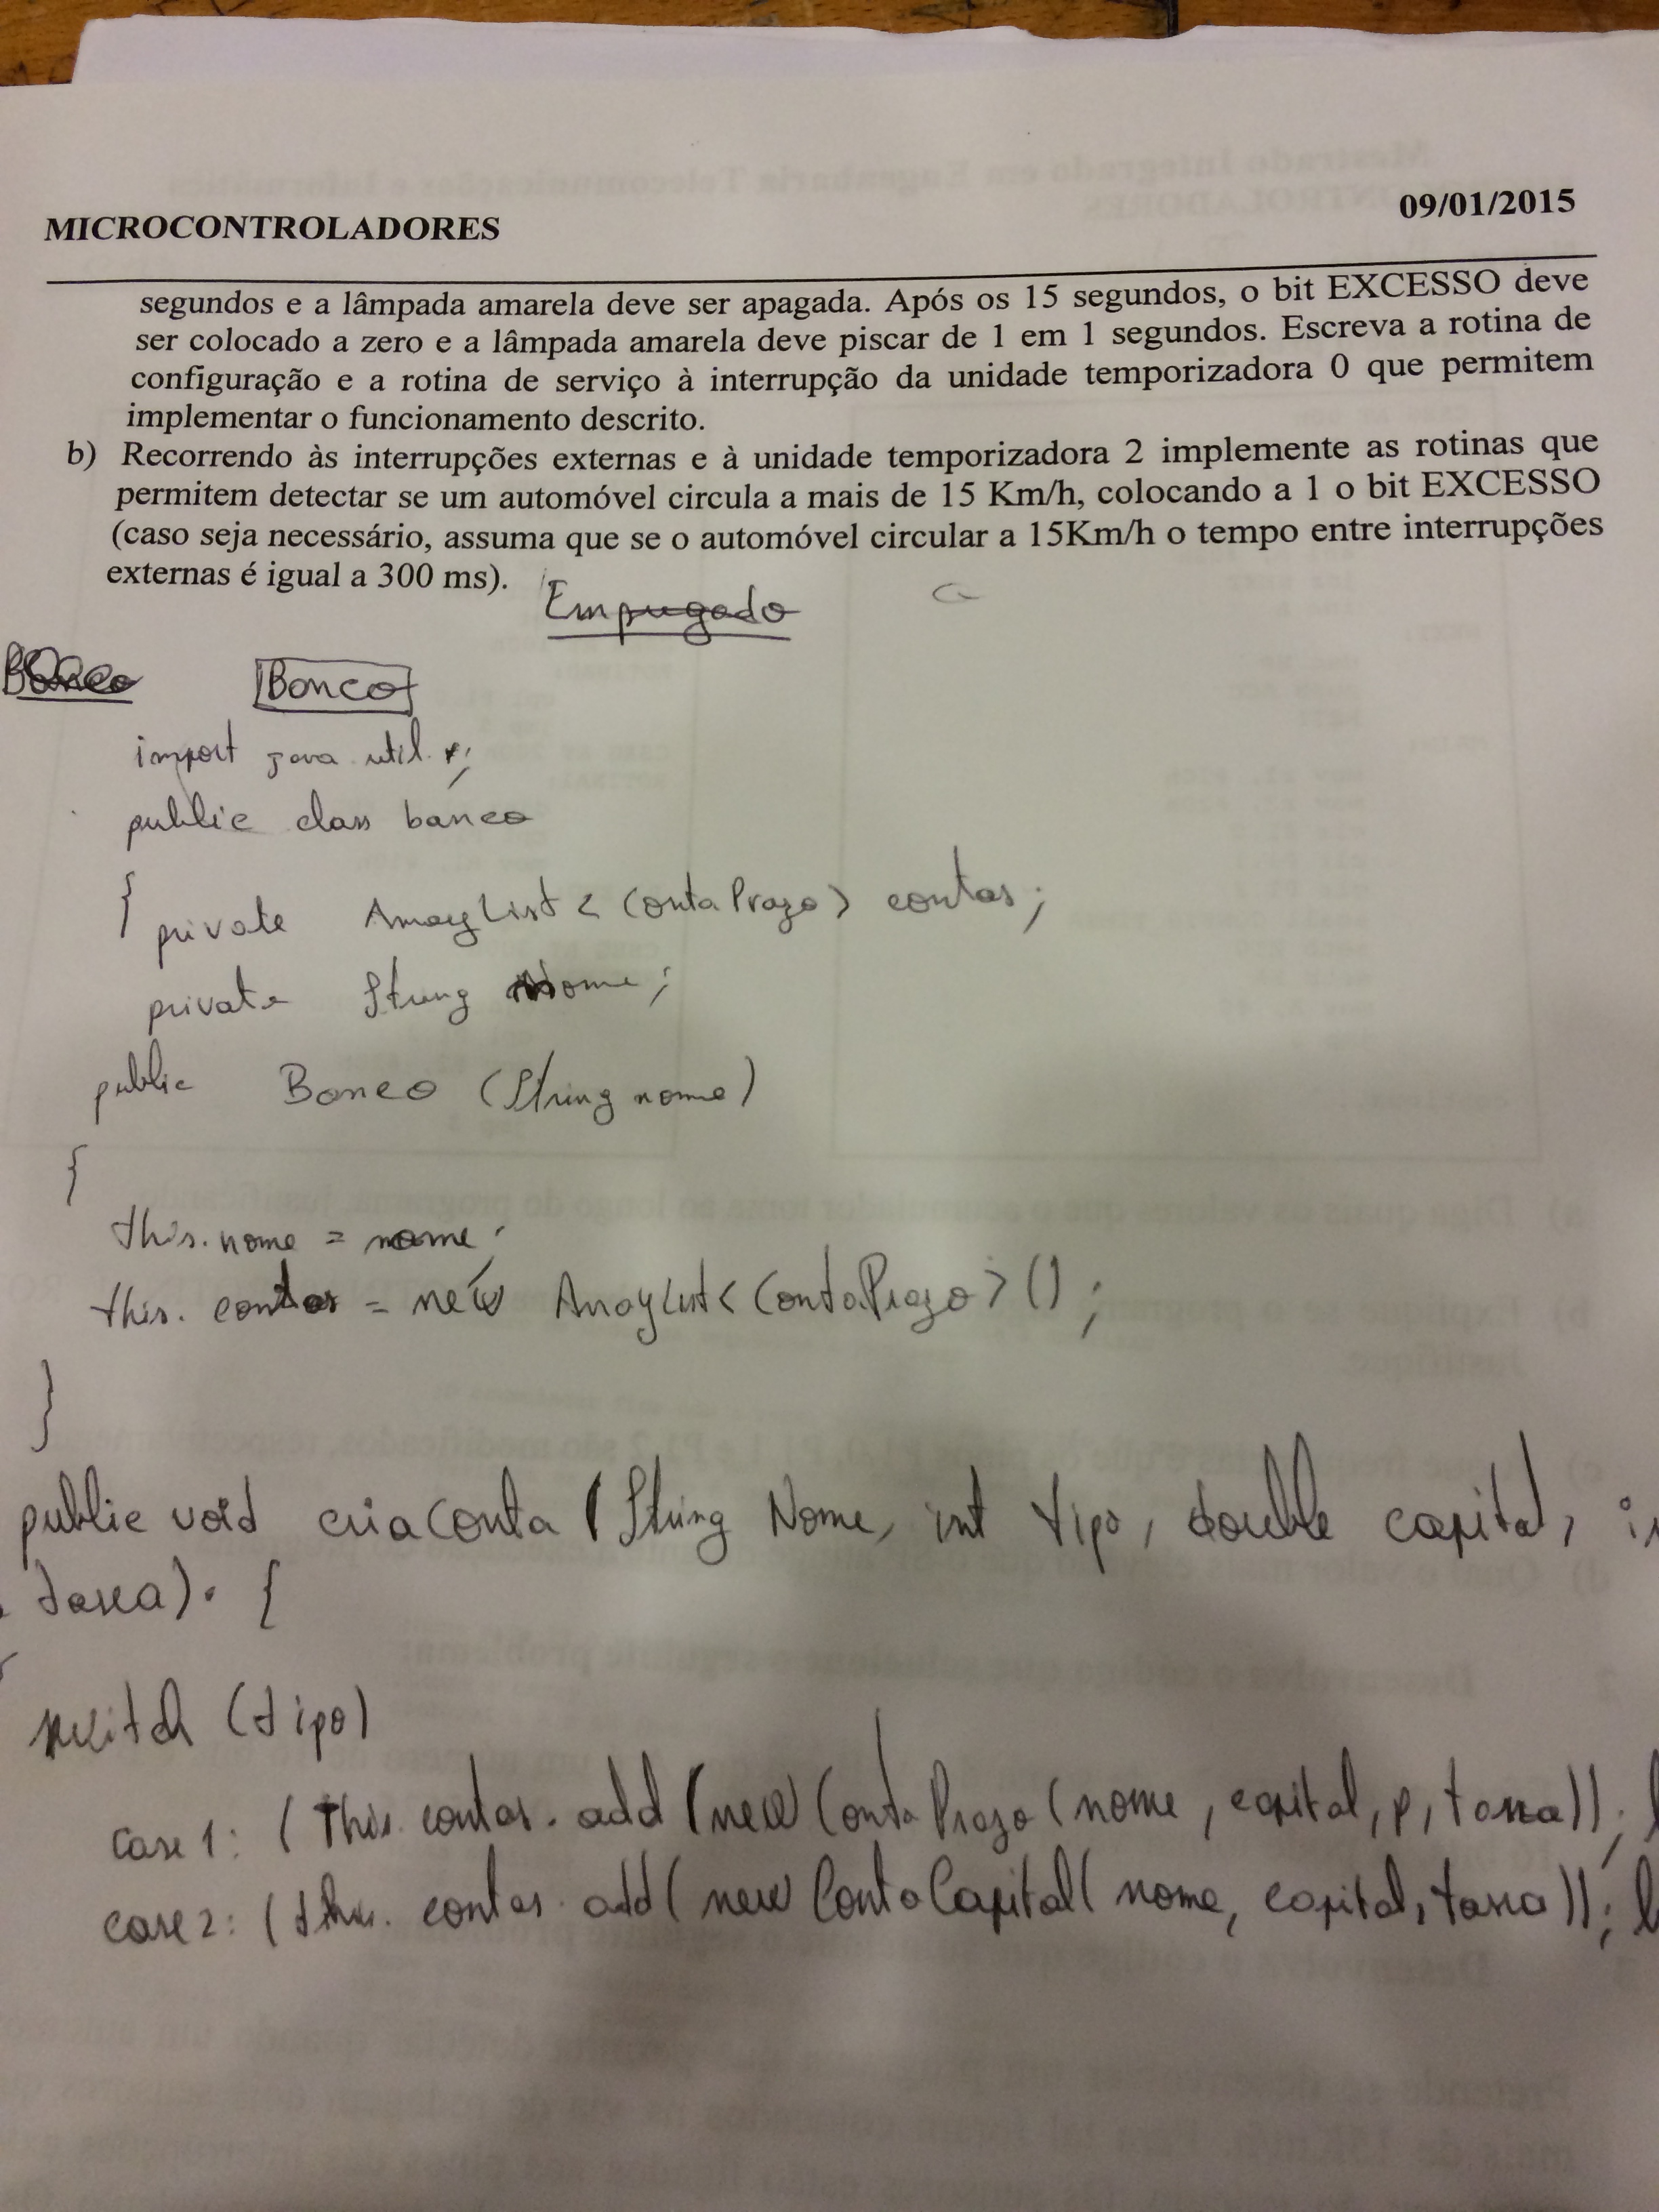 MICROCONTROLADORES 09/01/2015
segundos e a lâmpada amarela deve ser apagada. Após os 15 segundos, o bit EXCESSO deve
ser colocado a zero e a lâmpada amarela deve piscar de 1 em 1 segundos. Escreva a rotina de
configuração e a rotina de serviço à interrupção da unidade temporizadora 0 que permitem
implementar o funcionamento descrito.
b) Recorrendo às interrupções externas e à unidade temporizadora 2 implemente as rotinas que
permitem detectar se um automóvel circula a mais de 15 Km/h, colocando a 1 o bit EXCESSO
(caso seja necessário, assuma que se o automóvel circular a 15Km/h o tempo entre interrupções
externas é igual a 300 ms).
Empregado
Banco Banco
import java.util.*;
public class banco
{ private ArrayList<ContaPrazo> contas;
private String Nome;
public Banco (String nome)
{
this.nome = nome;
this.contas = new ArrayList<ContaPrazo>();
}
public void criaConta (String Nome, int tipo, double capital,
taxa). {
switch (tipo)
case 1: (This.contas.add (new ContaPrazo (nome, capital, p, taxa));
case 2: (this.contas.add (new ContaCapital (nome, capital, taxa));